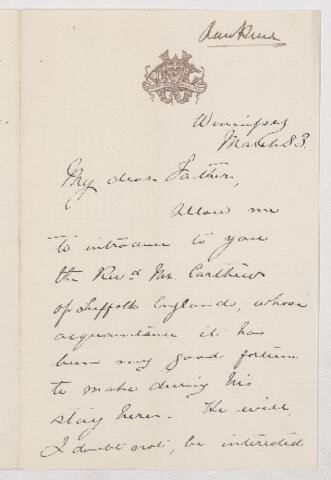 Winnipeg
March 83.
My dear Father,
Allow me
to introduce to you
the Revd. Mr. Carthew
of Suffolk England, whose
acquaintance it has
been my good fortune
to make during his
stay here. He will,
I doubt not, be interested